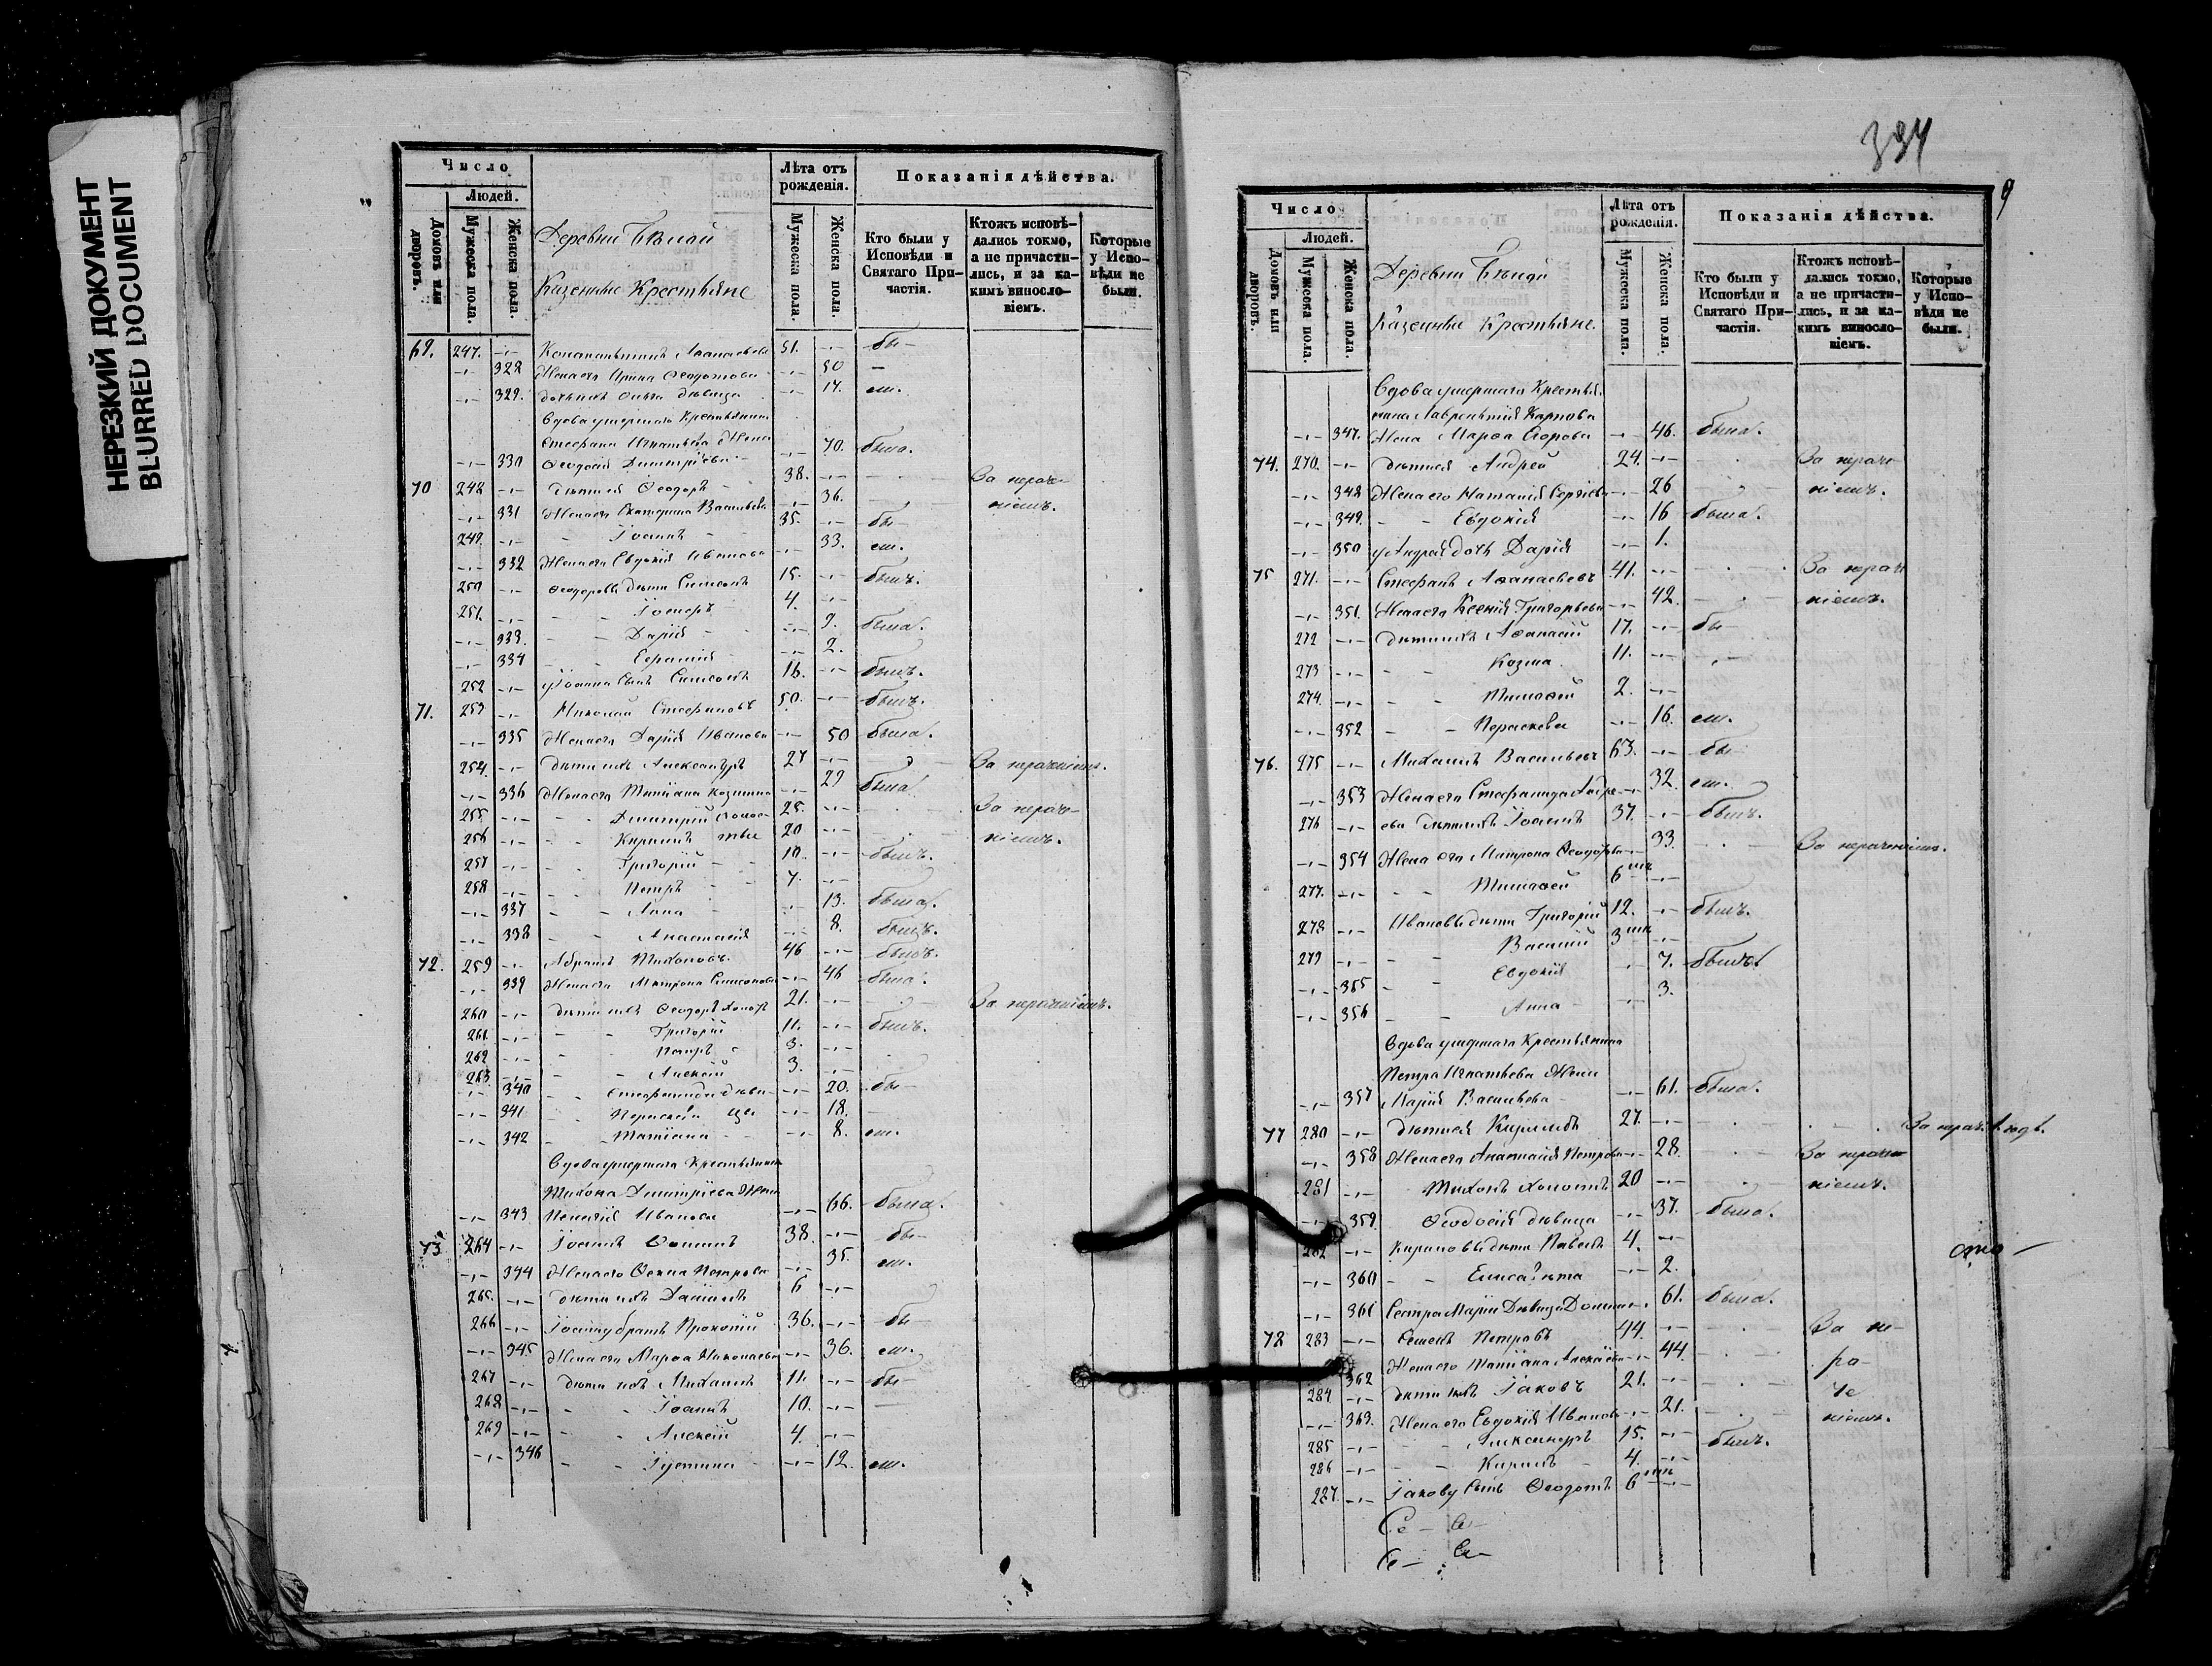 НЕРЕЗКИЙ ДОКУМЕНТ
BLURRED DOCUMENT
Число
Людей.
Домовъ или дворовъ.
Мужеска пола.
Женска пола.
Деревни
Казенные Крестьяне
Лѣта отъ рожденія.
Мужеска пола.
Женска пола.
Показанія дѣйства.
Кто были у Исповѣди и Святаго Причастія.
Ктожъ исповѣдались токмо, а не причастились, и за какимъ винословіемъ.
Которые у Исповѣди не были.
69. 247. 51. бы-
328 Жена его Ирина Ѳеодотова 50 -
329. дочь ихъ дѣвица 17. ли.
Вдова умершаго Крестьянина
Стефана Игнатьева Жена
330 Ѳеодосія Димитріева 70. была.
70 248 дѣти ея Ѳеодоръ 38. За нераче-
331 Жена его Екатерина Васильева 36. ніемъ.
249. Іоаннъ 35. бы-
332 Жена его Евдокія Иванова 33. ли.
250 Ѳеодоровы дѣти Симеонъ 15. былъ.
251. 4.
333. Дарія 9. была.
334 2.
252 у Іоанна сынъ Симеонъ 16. былъ.
71. 253 Николай Стефановъ 50. былъ.
335 Жена его Дарія Иванова 50 была.
254. дѣти ихъ Александръ 27 За нераченіемъ.
336 Жена его Татіана Козмина 29 была.
255. Димитрій холос- 25. За нераче-
256 Кириллъ тые 20 ніемъ.
257 Григорій 10. былъ.
258 Петръ 7.
337 Анна 13. была.
338 Анастасія 8. былъ.
72. 259 Абрамъ Тихоновъ. 46 былъ.
339 Жена его Матрона Симеонова 46 была.
260 дѣти ихъ Ѳеодоръ холостъ 21. За нераченіемъ.
261. Григорій 11. былъ.
262 Петръ 3.
263. Алексій 3.
340 Стефанида дѣви- 20. бы-
341 Параскева цы 18. -
342 Татіана 8. ли.
Вдова умершаго Крестьянина
Тихона Димитріева Жена
343 Пелагія Иванова 66. была.
73 264 Іоаннъ Ѳоминъ 38. бы-
344 Жена его Ѳекла Петрова 35. ли.
265. дѣти ихъ Даніилъ 6
266 Іоанну братъ Прокопій 36. бы-
345 Жена его Марѳа Николаева 36. ли.
267 дѣти ихъ Михаилъ 11. бы-
268 Іоаннъ 10. -
269 Алексій 4.
346 Іустина 12. ли.
394
9
Число
Людей.
Домовъ или дворовъ.
Мужеска пола.
Женска пола.
Деревни
Казенные Крестьяне.
Лѣта отъ рожденія.
Мужеска пола.
Женска пола.
Показанія дѣйства.
Кто были у Исповѣди и Святаго Причастія.
Ктожъ исповѣдались токмо, а не причастились, и за какимъ винословіемъ.
Которые у Исповѣди не были.
Вдова умершаго Крестья-
нина Лаврентія Карпова
347. Жена Марѳа Егорова 46. была.
74. 270. дѣти ея Андрей 24. За нераче-
348 Жена его Наталія Сергіева 26 ніемъ.
349. Евдокія 16 была.
350 у Андрея дочь Дарія 1.
75 271. Стефанъ Аѳанасьевъ 41. За нераче
351. Жена его Ксенія Григорьева 42. ніемъ.
272 дѣти ихъ Аѳанасій 17. бы-
273 Козма 11.
274. Тимоѳей 2.
352 Параскева 16. ли.
76. 275 Михаилъ Васильевъ 63. бы-
353 Жена его Стефанида Андре- 32. ли.
276 ева дѣти ихъ Іоаннъ 37. былъ.
354 Жена его Матрона Ѳеодорова 33. За нераченіемъ.
277. Тимоѳей 6 мѣ
278 Ивановы дѣти Григорій 12. былъ.
279 Василій 3 мѣ
355 Евдокія 7. была
356 Анна 3.
Вдова умершаго Крестьянина
Петра Игнатьева Жена
357 Марія Васильева 61. была.
77 280 дѣти ея Кириллъ 27. За нерач. 1 годъ.
358 Жена его Анастасія Петрова 28. За нераче
281 Тихонъ холостъ 20 ніемъ.
359. Ѳеодосія дѣвица 37. была.
282 Кириловы дѣти Павелъ 4.
360 Елисавета 2.
361 Сестра Маріи дѣвица Домна 61. была.
78 283 Семенъ Петровъ 44. За не-
362 Жена его Татіана Алексіева 44. ра-
284 дѣти ихъ Іаковъ 21. че
363. Жена его Евдокія Иванова 21. ніемъ.
285 Александръ 15. былъ.
286 Кириллъ 4.
287. Іакову сынъ Ѳеодотъ 6 мѣ